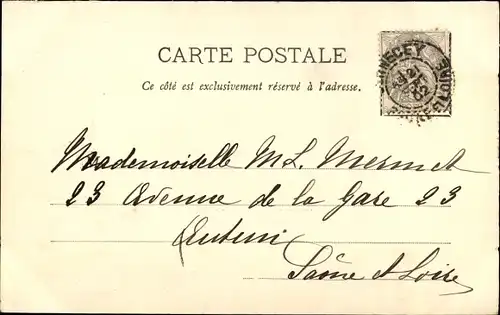 CARTE POSTALE
Ce côté est exclusivement réservé à l'adresse.
Mademoiselle M. L. Mermet
23 Avenue de la Gare 23
Autun
Saône et Loire